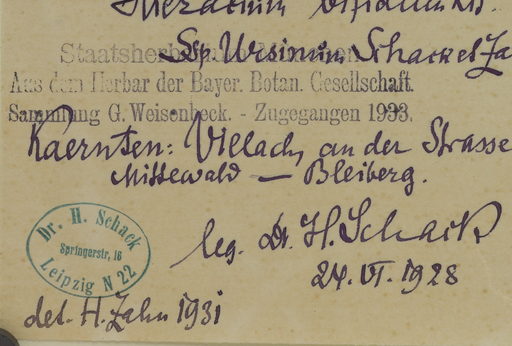 Hieracium bifidum Kit.
Ssp. Ursinum Schack et Za
Staatsherbarium München
Aus dem Herbar der Bayer. Botan. Gesellschaft.
Sammlung G. Weisenbeck. - Zugegangen 1933.
Kaernten: Villach, an der Strasse
Mittewald — Bleiberg.
leg. Dr. H. Schack
24. VI. 1928
Dr. H. Schack
Springerstr. 16
Leipzig N 22
det. H. Zahn 1931